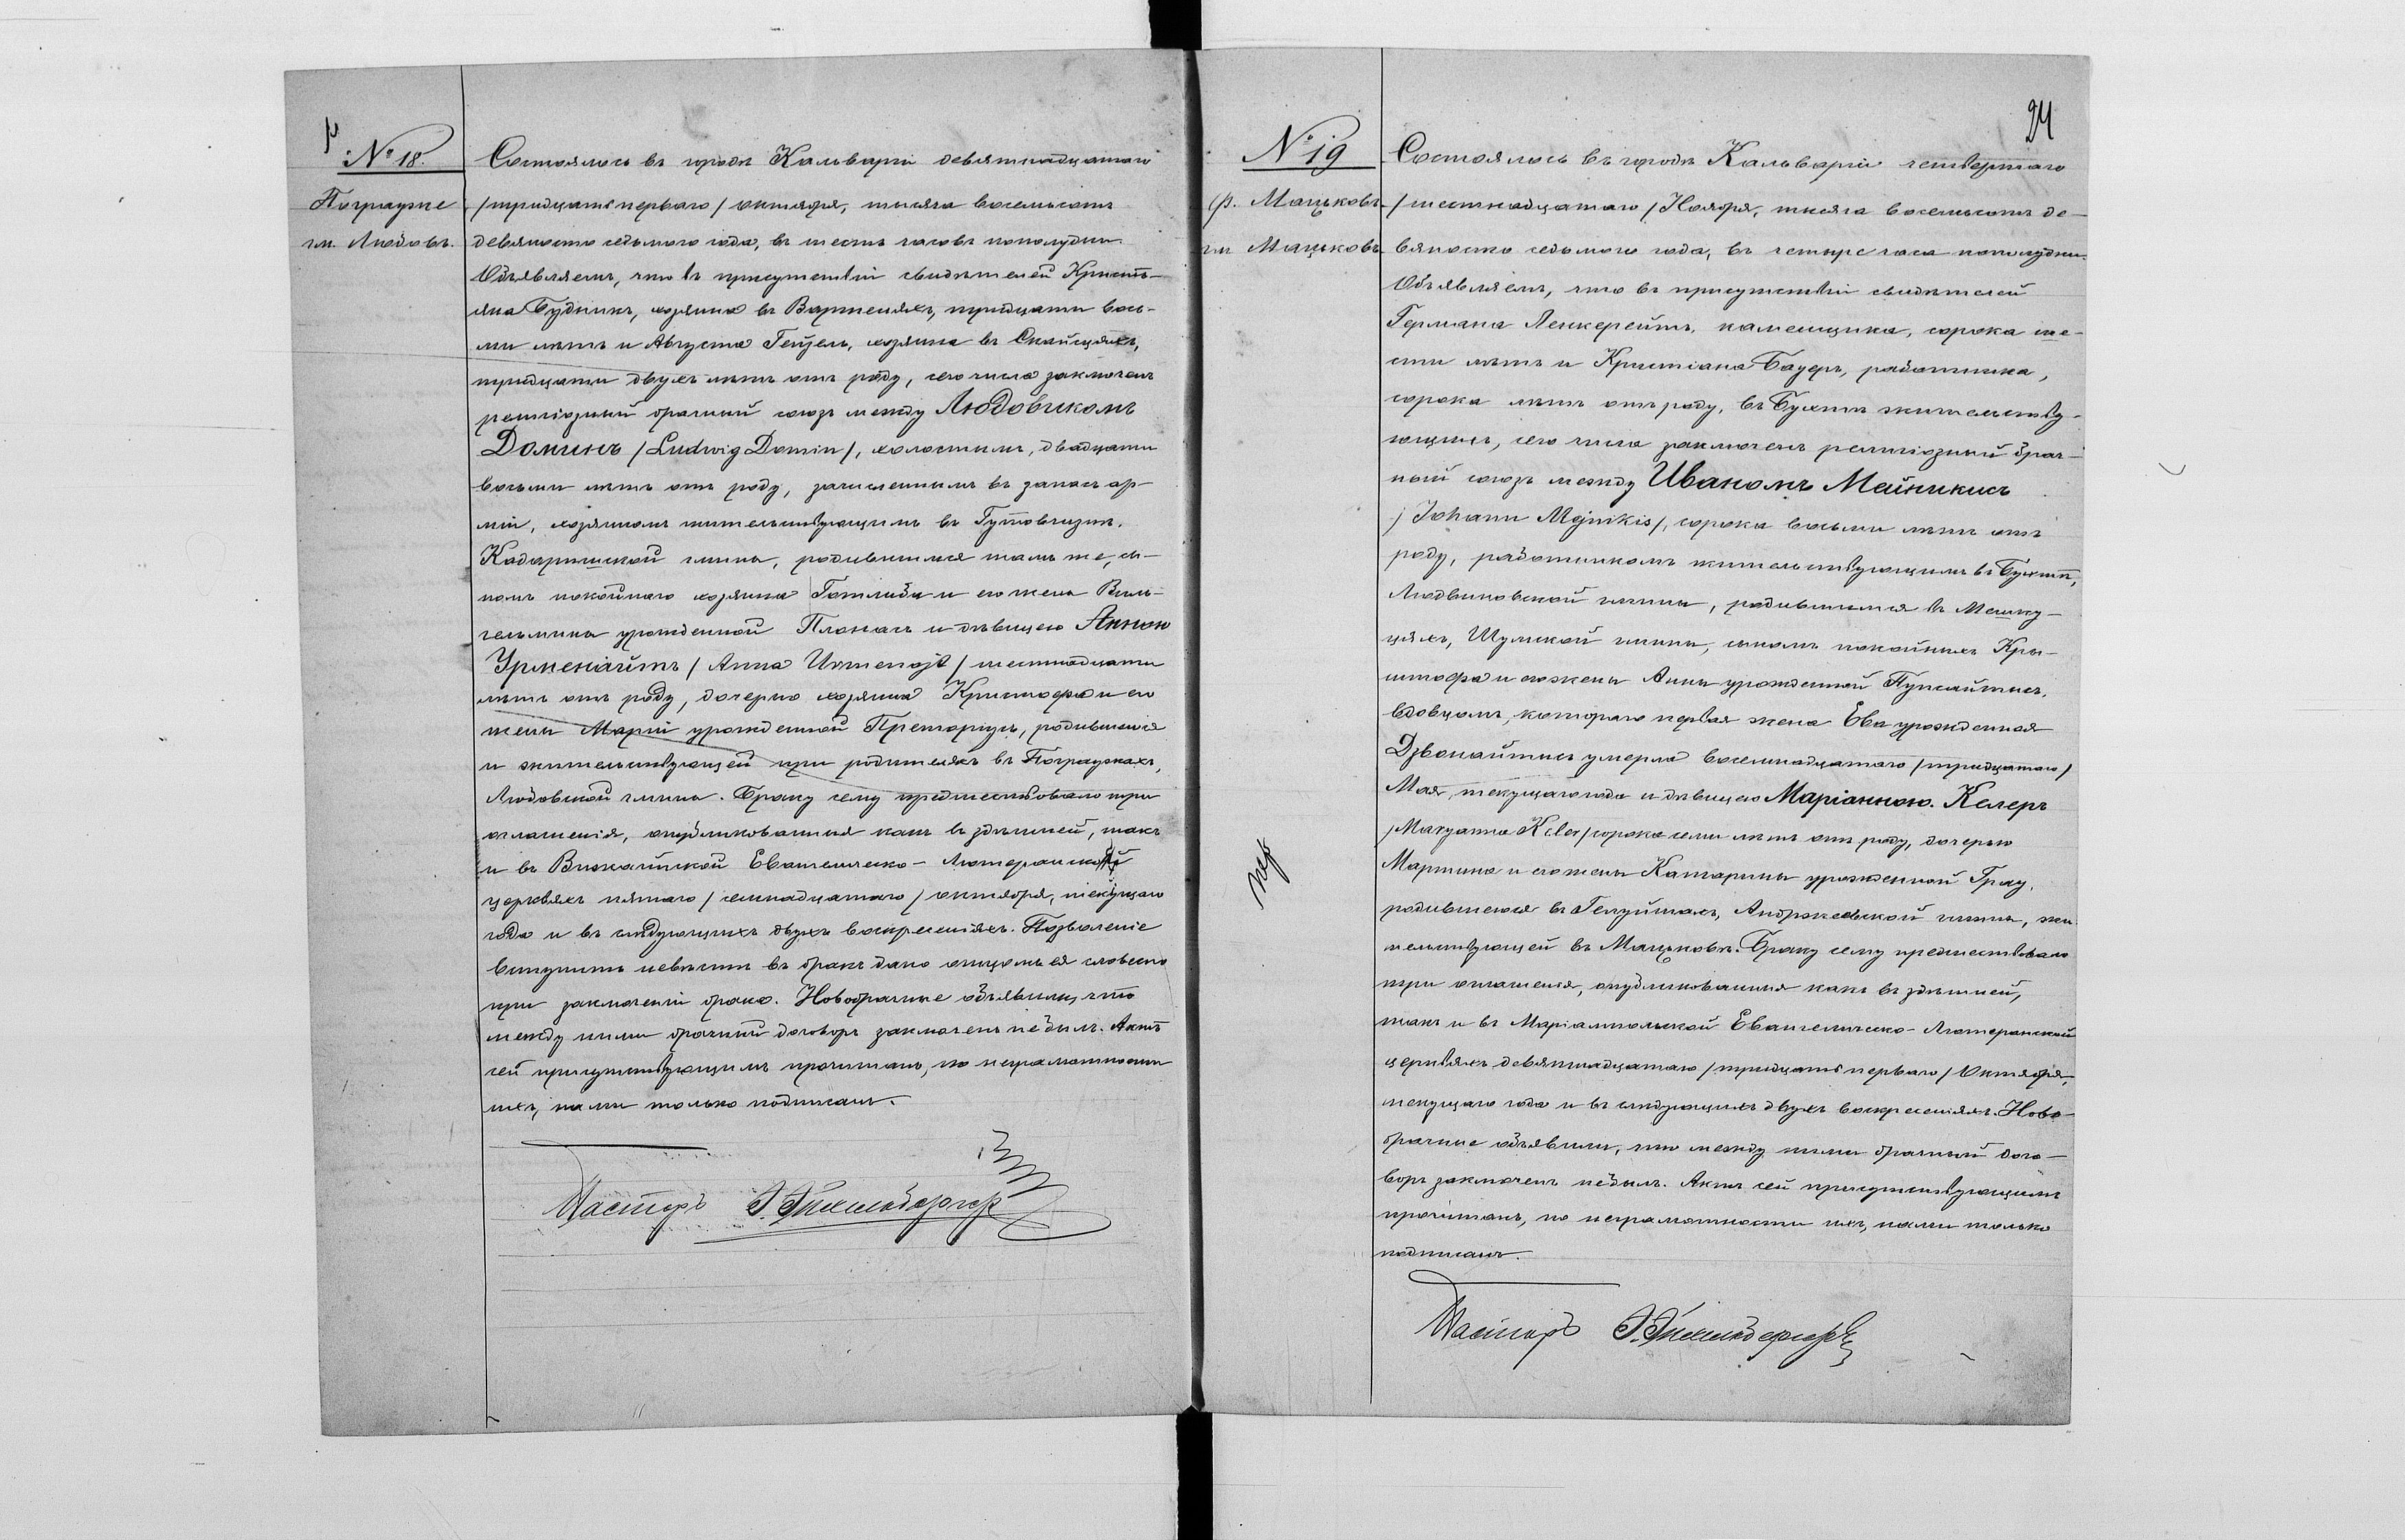 № 18.
Пограузке
гм. Любовъ.
Состоялось въ городѣ Кальваріи девятнадцатаго
/тридцать перваго/ октября, тысяча восемьсотъ
девяносто седьмого года, въ шесть часовъ пополудни.
Объявляемъ, что въ присутствіи свидѣтелей Кристь-
яна Будникъ, хозяина въ тридцати вось-
ми лѣтъ и Августа хозяина въ
тридцати двухъ лѣтъ отъ роду, сего числа заключенъ
религіозный брачный союзъ между Людовикомъ
Доминъ /Ludwig Domin/, холостымъ, двадцати
восьми лѣтъ отъ роду, зачисленнымъ въ запасъ ар-
міи, хозяиномъ жительствующимъ въ
Кадарышской гмины, родившимся тамъ же, сы-
номъ покойнаго хозяина Готлиба и его жены Виль-
гельмины урожденной и дѣвицею Анною
Урменайтъ /Anna Urmenajt/ шестнадцати
лѣтъ отъ роду, дочерью хозяина Кристофа и его
жены Маріи урожденной Преторіусъ, родившеюся
и жительствующей при родителяхъ въ Пограузкахъ,
Любовской гмины. Браку сему предшествовало три
оглашенія, опубликованныя какъ въ здѣшней, такъ
и въ Вижайнской Евангелическо-Лютеранской
церквяхъ пятаго /семнадцатаго/ октября, текущаго
года и въ слѣдующихъ двухъ воскресеніяхъ. Позволеніе
вступить невѣстѣ въ бракъ дано отцомъ ея словесно
при заключеніи брака. Новобрачные объявили, что
между ними брачный договоръ заключенъ не былъ. Актъ
сей присутствующимъ прочитанъ, по неграмотности
ихъ, нами только подписанъ.
Пасторъ
24
№ 19
ф. Мацьковъ
гм. Мацьковъ
Состоялось въ городѣ Кальваріи четвертаго
/шестнадцатаго/ Ноября, тысяча восемьсотъ де-
вяносто седьмого года, въ четыре часа пополудни.
Объявляемъ, что въ присутствіи свидѣтелей
Германа Ленкерейтъ, каменщика, сорока ше-
сти лѣтъ и Кристіана Бауеръ, работника,
сорока лѣтъ отъ роду, въ Бухтѣ жительству-
ющихъ, сего числа заключенъ религіозный брач-
ный союзъ между Иваномъ Майникисъ
/Johann Majnikis/, сорока восьми лѣтъ отъ
роду, работникомъ жительствующимъ въ Бухтѣ,
Людвиновской гмины, родившимся въ Мешку-
цяхъ, Шумской гмины, сыномъ покойныхъ Кры-
штофа и его жены Анны урожденной
вдовцомъ, котораго первая жена Ева урожденная
Дзвонайтисъ умерла восемнадцатаго /тридцатаго/
Мая, текущаго года и дѣвицею Маріанною Келеръ
/Maryanna Keler/ сорока семи лѣтъ отъ роду, дочерью
Мартина и его жены Катарины урожденной Грау,
родившеюся въ Андржеевской гмины, жи-
тельствующей въ Мацьковѣ. Браку сему предшествовало
три оглашенія, опубликованныя какъ въ здѣшней,
такъ и въ Маріампольской Евангелическо-Лютеранской
церквяхъ девятнадцатаго /тридцать перваго/ Октября,
текущаго года и въ слѣдующихъ двухъ воскресеніяхъ. Ново-
брачные объявили, что между ними брачный дого-
воръ заключенъ не былъ. Актъ сей присутствующимъ
прочитанъ, по неграмотности ихъ, нами только
подписанъ.
Пасторъ